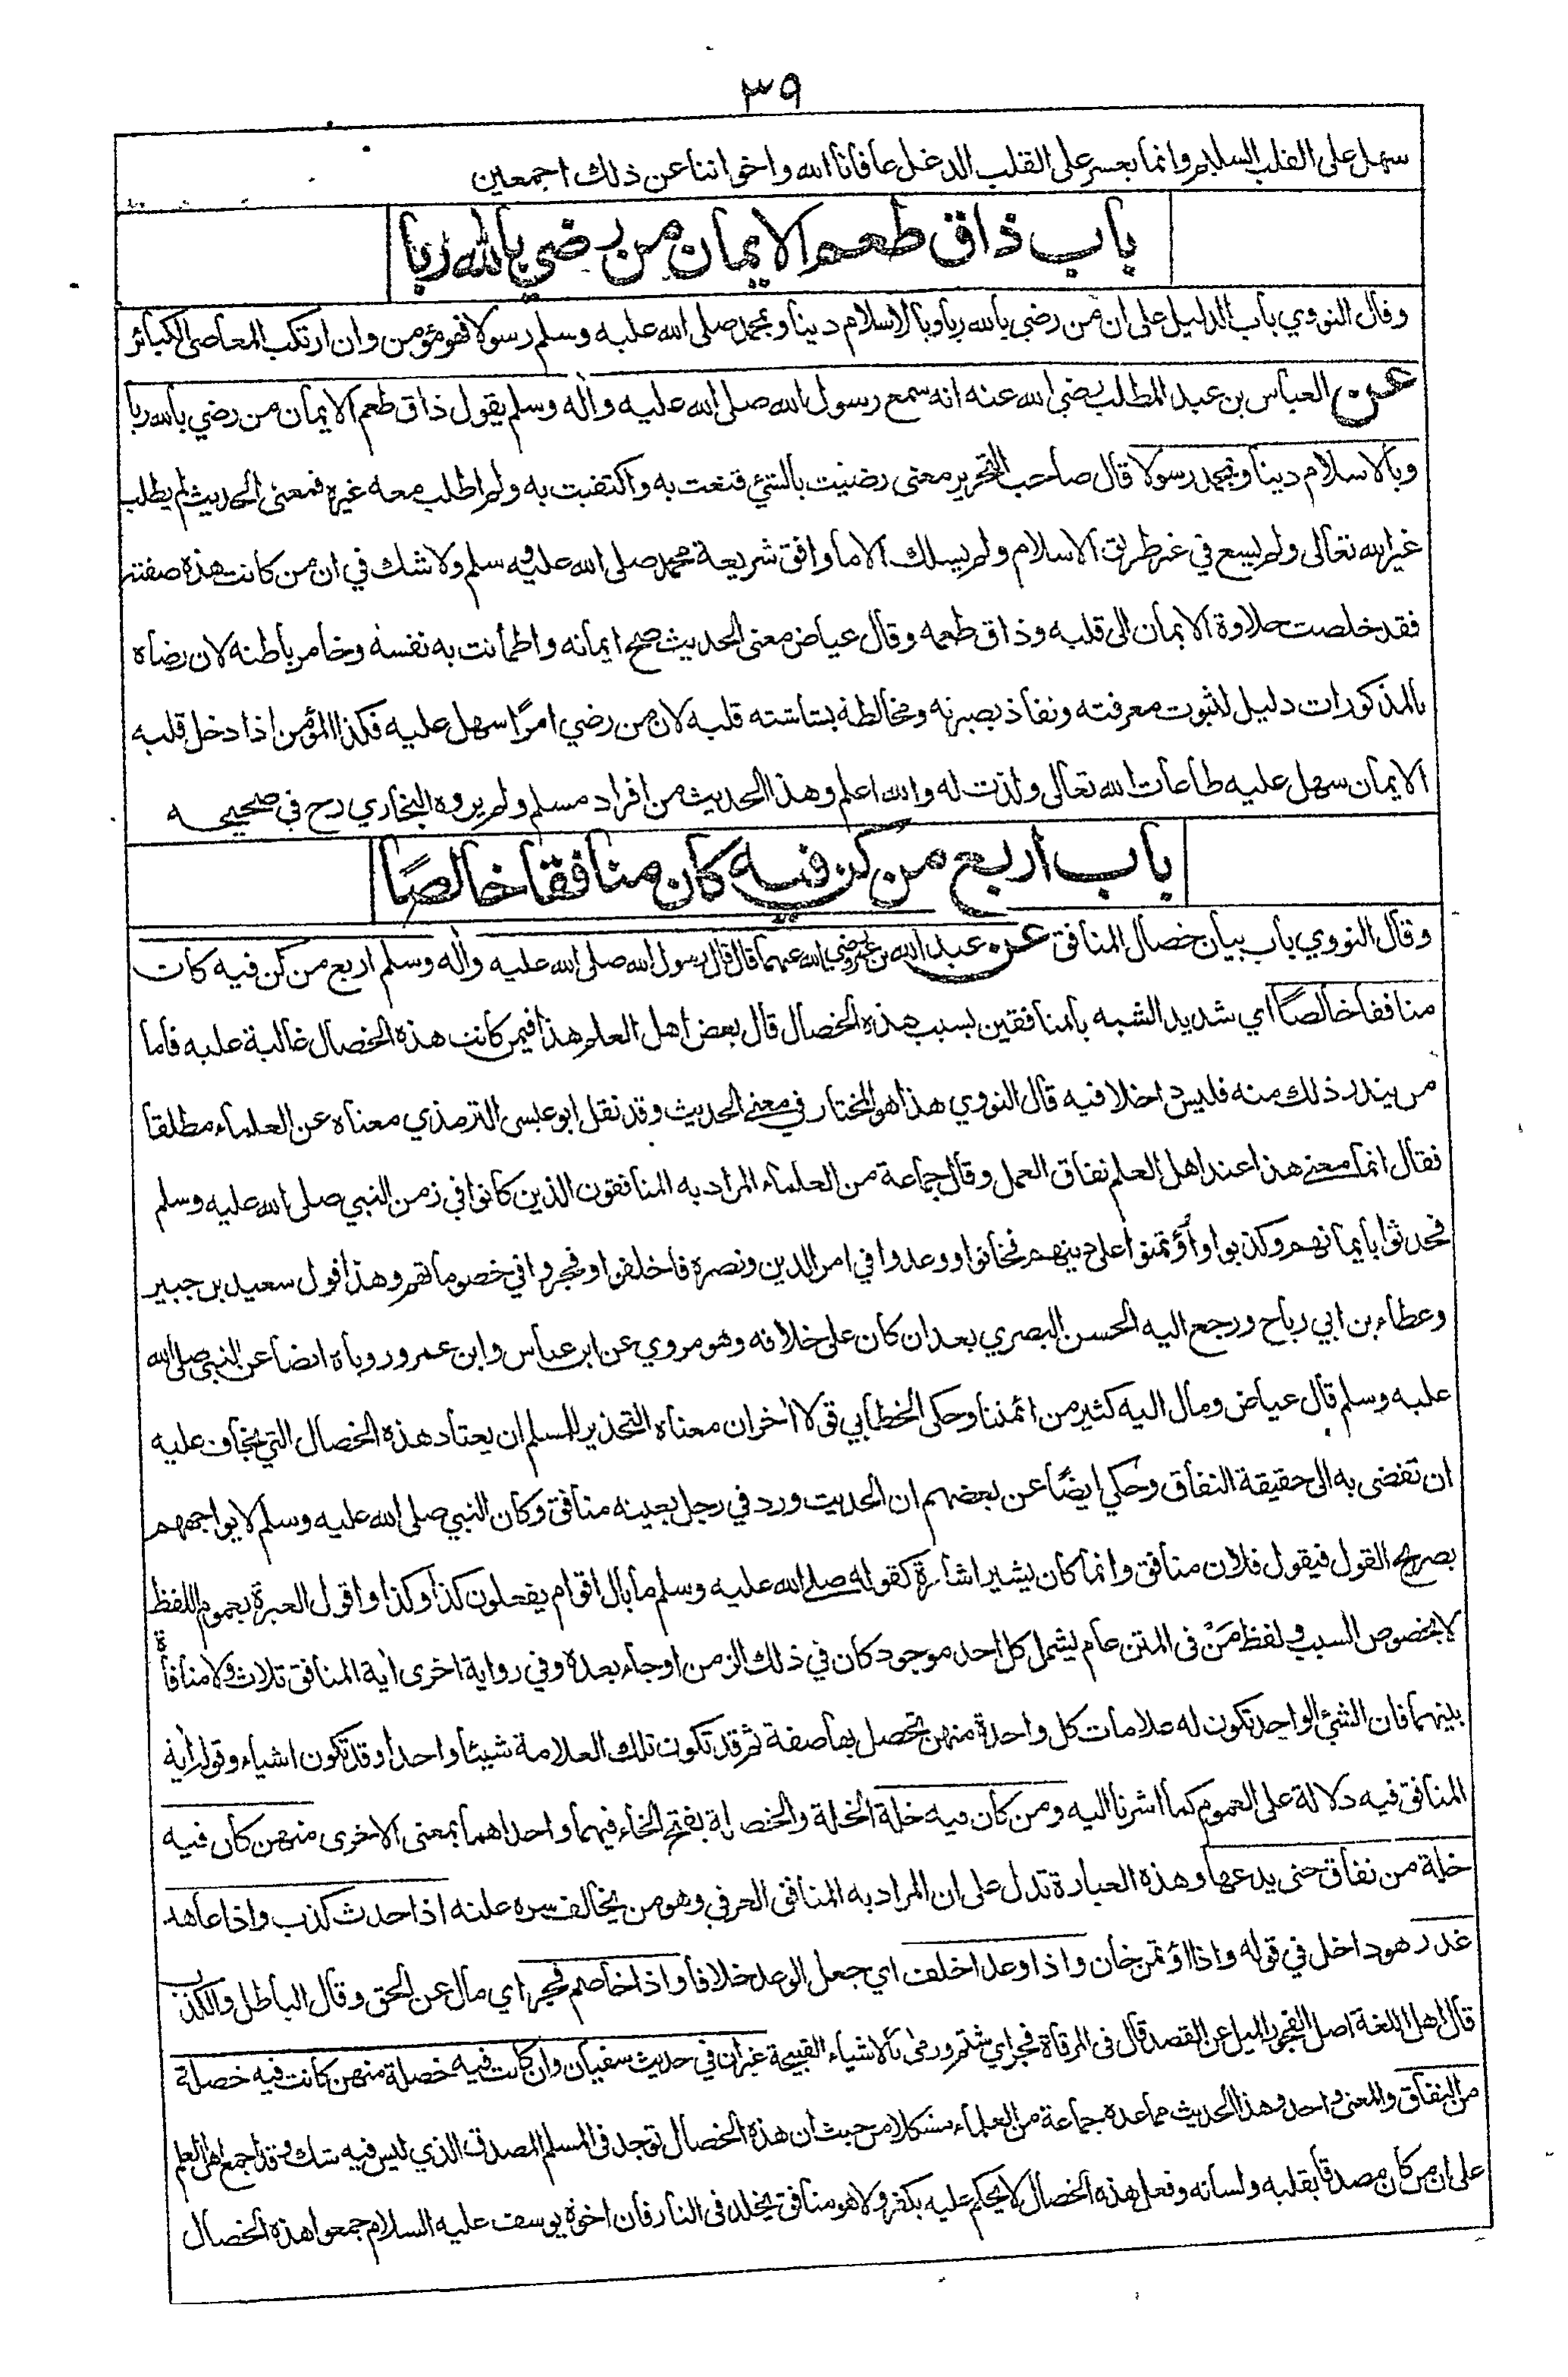 ٣٩
سهل على القلب السليم وانما يعسر على القلب الدغل عافانا الله واخواننا عن ذلك اجمعين
باب ذاق طعم الايمان من رضي بالله ربا
وقال النووي باب الدليل على ان من رضي بالله ربا وبالاسلام دينا وبمحمد صلى الله عليه وسلم رسولا فهو مؤمن وان ارتكب المعاصى الكبائر
عن العباس بن عبد المطلب رضي الله عنه انه سمع رسول الله صلى الله عليه واله وسلم يقول ذاق طعم الايمان من رضي بالله ربا
وبالاسلام دينا وبمحمد رسولا قال صاحب التحرير معنى رضيت بالشئ قنعت به واكتفيت به ولم اطلب معه غيره فمعنى الحديث لم يطلب
غير الله تعالى ولم يسع في غير طريق الاسلام ولم يسلك الا ما وافق شريعة محمد صلى الله عليه وسلم ولا شك في ان من كانت هذه صفته
فقد خلصت حلاوة الايمان الى قلبه وذاق طعمه وقال عياض معنى الحديث صح ايمانه واطمأنت به نفسه وخامر باطنه لان رضاه
بالمذكورات دليل لثبوت معرفته ونفاذ بصيرته ومخالطة بشاشته قلبه لان من رضي امرًا سهل عليه فكذا المؤمن اذا دخل قلبه
الايمان سهل عليه طاعات الله تعالى ولذت له والله اعلم وهذا الحديث من افراد مسلم ولم يروه البخاري رح في صحيحه
باب اربع من كن فيه كان منافقا خالصًا
وقال النووي باب بيان خصال المنافق عن عبد الله بن عمرو رضي الله عنهما قال قال رسول الله صلى الله عليه واله وسلم اربع من كن فيه كان
منافقا خالصًا اي شديد الشبه بالمنافقين بسبب هذه الخصال قال بعض اهل العلم هذا فيمن كانت هذه الخصال غالبة عليه فاما
من يندر ذلك منه فليس داخلا فيه قال النووي هذا هو المختار في معنى الحديث وقد نقل ابو عيسى الترمذي معناه عن العلماء مطلقا
فقال انما معنى هذا عند اهل العلم نفاق العمل وقال جماعة من العلماء المراد به المنافقون الذين كانوا في زمن النبي صلى الله عليه وسلم
فحدثوا بايمانهم وكذبوا واؤتمنوا على دينهم فخانوا ووعدوا في امر الدين ونصره فاخلفوا وفجروا في خصوماتهم وهذا قول سعيد بن جبير
وعطاء بن ابي رباح ورجع اليه الحسن البصري بعد ان كان على خلافه وهو مروي عن ابن عباس وابن عمر وروياه ايضا عن النبي صلى الله
عليه وسلم قال عياض ومال اليه كثير من ائمتنا وحكى الخطابي قولا اخر ان معناه التحذير للمسلم ان يعتاد هذه الخصال التي يخاف عليه
ان تفضى به الى حقيقة النفاق وحكي ايضًا عن بعضهم ان الحديث ورد في رجل بعينه منافق وكان النبي صلى الله عليه وسلم لا يواجههم
بصريح القول فيقول فلان منافق وانما كان يشير اشارة كقوله صلى الله عليه وسلم ما بال اقوام يفعلون كذا وكذا واقول العبرة بعموم اللفظ
لا بخصوص السبب ولفظ مَنْ في المتن عام يشمل كل احد موجود كان في ذلك الزمن او جاء بعده وفي رواية اخرى اية المنافق ثلاث ولا منافاة
بينهما فان الشئ الواحد تكون له علامات كل واحدة منهن تحصل بها صفة ثم قد تكون تلك العلامة شيئا واحدا وقد تكون اشياء وقوله اية
المنافق فيه دلالة على العموم كما اشرنا اليه ومن كان فيه خلة الخلة والخصلة بفتح الخاء فيهما واحداهما بمعنى الاخرى منهن كان فيه
خلة من نفاق حتى يدعها وهذه العبارة تدل على ان المراد به المنافق العرفي وهو من يخالف سره علنه اذا حدث كذب واذا عاهد
غدر هو داخل في قوله واذا اؤتمن خان واذا وعد اخلف اي جعل الوعد خلافا واذا خاصم فجر اي مال عن الحق وقال الباطل والكذب
قال اهل اللغة اصل الفجور الميل عن القصد قال في المرقاة فجر اي شتم ورمى بالاشياء القبيحة غير ان في حديث سفيان وان كانت فيه خصلة منهن كانت فيه خصلة
من النفاق والمعنى واحد وهذا الحديث مما عده جماعة من العلماء مشكلا من حيث ان هذه الخصال توجد في المسلم المصدق الذي ليس فيه شك وقد اجمع اهل العلم
على ان من كان مصدقا بقلبه ولسانه وفعل هذه الخصال لا يحكم عليه بكفر ولا هو منافق يخلد في النار فان اخوة يوسف عليه السلام جمعوا هذه الخصال